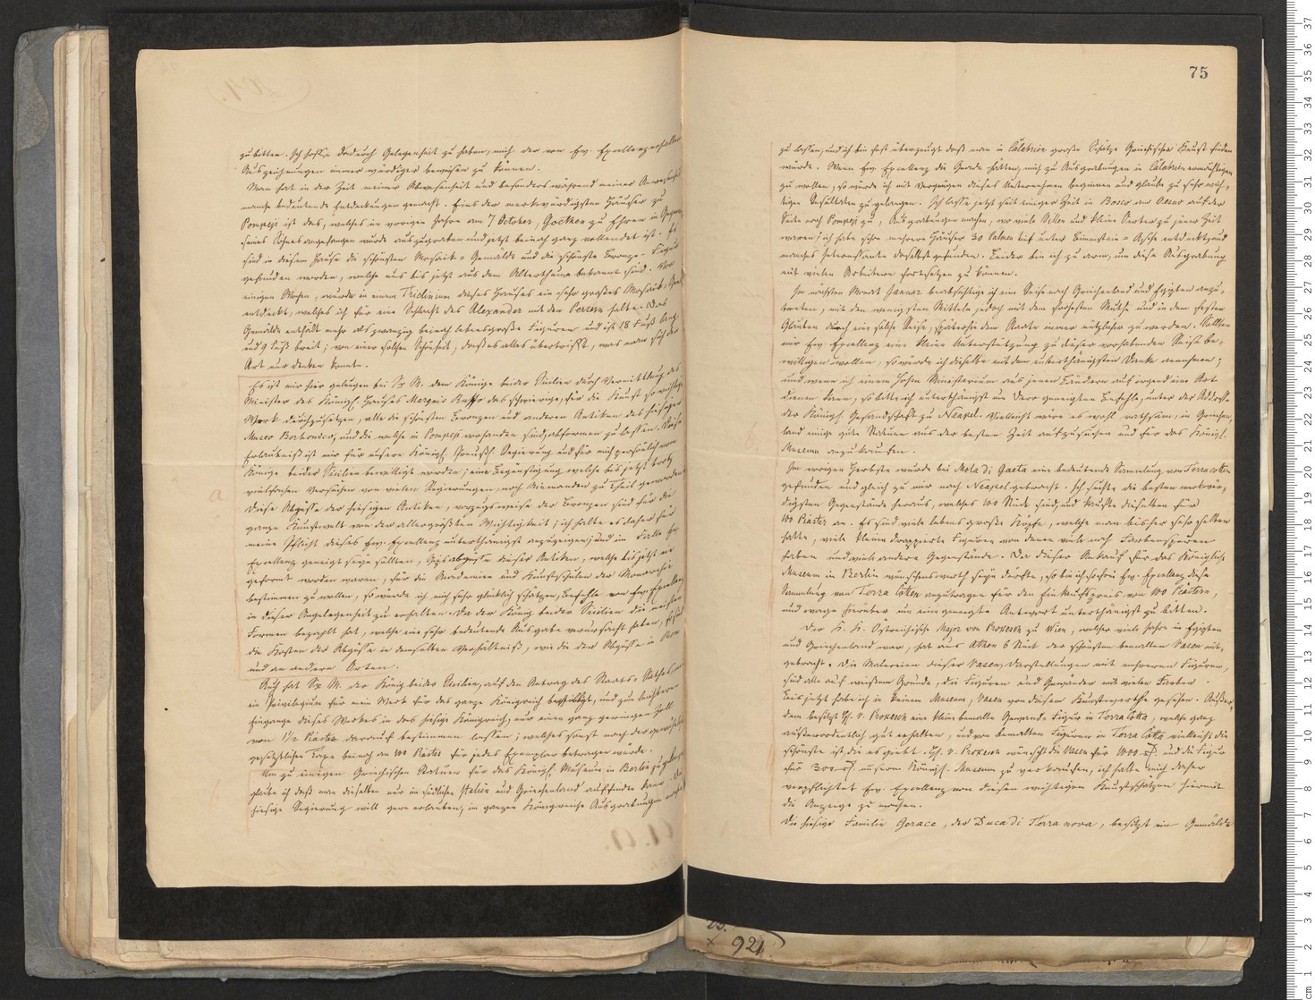 zu bitten. Ich hoffe dadurch Gelegenheit zu haben, mich der von Ew. Excellenz erhaltenen
Auszeichnungen immer würdiger beweisen zu können.
Man hat in der Zeit meiner Abwesenheit und besonders während meiner
manche bedeutende Entdeckungen gemacht. Eins der merkwürdigsten Häuser zu
Pompeji ist das, welches im vorigen Jahre am 7 October, Goethen zu Ehren in Gegenwart
seines Sohnes angefangen wurde auszugraben und jetzt beinah ganz vollendet ist. Es
sind in diesem Hause die schönsten Mosaik-Gemälde und die schönste Bronze-Figur
gefunden worden, welche uns bis jetzt aus dem Alterthume bekannt sind. Vor
einigen Wochen, wurde in einem Triclinium dieses Hauses ein sehr großes Mosaik-
entdeckt, welches ich für eine Schlacht des Alexander mit den Persern halte. Das
Gemälde enthält mehr als zwanzig beinah lebensgroße Figuren und ist 18 Fuß lang
und 9 Fuß breit; von einer solchen Schönheit, daß es alles übertrifft, was man sich der
Art nur denken konnte.
Es ist mir hier gelungen bei Sr. M. dem Könige beider Sicilien durch Vermittlung des
Minister des Königl. Hauses Marquis Ruffo das schwierige, für die Kunst so wichtige
Werk durchzusetzen, alle die schönsten Bronzen und anderen Antiken des hiesigen
Museo Borbonico, und die welche in Pompeji vorhanden sind, abformen zu lassen. Diese
Erlaubniß ist mir für unsere Königl. Preußl. Regierung und für mich persönlich vom
Könige beider Sicilien bewilligt worden; eine Begünstigung welche bis jetzt trotz
vielfachen Versuchen von vielen Regierungen noch Niemanden zu Theil geworden
Diese Abgüsse der hiesigen Antiken, vorzugsweise der Bronzen sind für die
ganze Kunstwelt von der allergrößten Wichtigkeit; ich halte es daher für
meine Pflicht dieses Ew. Excellenz unterthänigst anzuzeigen, und im Falle Ew.
Excellenz geneigt sein sollten, Gipsabgüsse dieser Antiken, welche bis jetzt nie
geformt worden waren, für die Academien und Kunstschulen der Monarchie
bestimmen zu wollen, so werde ich mich sehr glücklich schätzen, Befehle von Ew. Excellenz
in dieser Angelegenheit zu erhalten. Da der König beider Sicilien die
Formen bezahlt hat, welche eine sehr bedeutende Ausgabe verursacht haben, so sind
die Kosten der Abgüsse in demselben Verhältniß, wie die der Abgüsse in Rom
und an andern Orten.
Auch hat Sr. M. der König beider Sicilien, auf den Antrag des Staats-Rathes,
ein Privilegium für mein Werk für das ganze Königreich bewilligt, und zu leichterem
Eingange dieses Werkes in das hiesige Königreich, nur einen ganz geringen Zoll
von 1½ Piaster darauf bestimmen lassen; welches sonst nach der gewöhnlichen
gesetzlichen Taxe beinah an 100 Piaster für jedes Exemplar betragen würde.
Um zu einigen Griechischen Statuen für das Königl. Museum in Berlin zu gelangen
glaube ich daß man dieselben nur im südlichen Italien und Griechenland auffinden kann. Die
hiesige Regierung will gern erlauben, im ganzen Königreiche Ausgrabungen machen
75
zu lassen, und ich bin fest überzeugt daß man in Calabrien große Schätze Griechischer Kunst finden
würde. Wenn Ew. Excellenz die Gnade hätten, mich zu Ausgrabungen in Calabrien ermächtigen
zu wollen, so würde ich mit Vergnügen dieses Unternehmen beginnen und glaube zu sehr wich-
tigen Resultaten zu gelangen. Ich lasse jetzt seit einiger Zeit in Bosco an der
Seite nach Pompeji zu, Ausgrabungen machen, wo viele Villen und kleine Oerter zu jener Zeit
waren; ich habe schon mehrere Häuser 30 Palmen tief unter Bimmstein-Asche entdeckt, und
manches Interessante daselbst gefunden. Leider bin ich zu arm, um diese Ausgrabung
mit vielen Arbeitern fortsetzen zu können.
Im nächsten Monat Januar beabsichtige ich eine Reise nach Griechenland und Egipten anzu-
treten, mit den wenigsten Mitteln, jedoch mit dem frohesten Muthe und in dem festen
Glauben durch eine solche Reise, späterhin dem Staate immer nützlicher zu werden. Wollten
mir Ew. Excellenz eine kleine Unterstützung zu dieser vorhabenden Reise be-
willigen wollen, so würde ich dieselbe mit dem unterthänigsten Danke annehmen;
und wenn ich einem Hohen Ministerium aus jenen Ländern auf irgend eine Art
dienen kann, so bitte ich unterthänigst um Dero geneigten Befehle, unter der Addresse
der Königl. Gesandschaft zu Neapel. Vielleicht wäre es wohl rathsam, in Griechen-
land einige gute Statuen aus der besten Zeit aufzusuchen und für das Königl.
Museum anzukaufen.
Im vorigen Herbste wurde bei Mola di Gaeta eine bedeutende Sammlung von Terracotten
gefunden und gleich zu mir nach Neapel gebracht. Ich suchte die besten merkwür-
digsten Gegenstände heraus, welches 100 Stück sind, und kaufte dieselben für
100 Piaster an. Es sind viele lebensgroße Köpfe, welche man bisher sehr selten
hatte, viele kleine drappirte Figuren von denen viele noch Farbenspuren
haben und viele andere Gegenstände. Da dieser Ankauf für das Königliche
Museum in Berlin wünschenswerth sein dürfte, so bin ich so frei Ew. Excellenz diese
Sammlung von Terra Cotten anzutragen für den Einkaufspreis von 100 Piastern,
und wage hierüber um eine geneigte Antwort unterthänigst zu bitten.
Der K. K. Östreichische Major von Prokesch zu Wien, welcher viele Jahre in Egipten
und Griechenland war, hat aus Athen 6 Stück der schönsten bemalten Vasen mit-
gebracht. Die Malereien dieser Vasen, Darstellungen mit mehreren Figuren,
sind alle auf weißem Grunde, die Figuren und Gewänder mit vielen Farben.
Bis jetzt habe ich in keinem Museum, Vasen von diesem Kunstwerthe gesehen. Außer-
dem besitzt H. v. Prokesch eine kleine bemalte Gewand-Figur in Terra Cotta, welche ganz
außerordentlich gut erhalten, und von bemalten Figuren in Terra Cotta vielleicht die
schönste ist, die es giebt. H. v. Prokesch wünscht die Vasen für 1000 und die Figur
für 300 unserm Königl. Museum zu verkaufen, ich halte mich daher
verpflichtet Ew. Excellenz von diesen wichtigen Kunstschätzen hiermit
die Anzeige zu machen.
Die hiesige Familie Gerace, der Duca di Terra nova, besitzt ein Gemälde
921